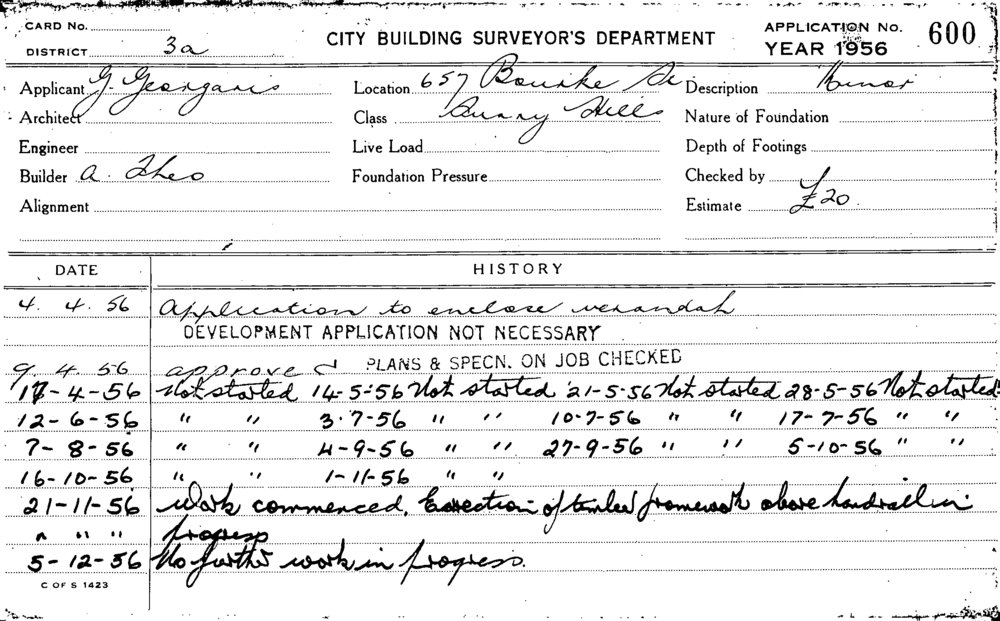 CARD No.
DISTRICT 3a
CITY BUILDING SURVEYOR'S DEPARTMENT
APPLICATION No. 600
YEAR 1956
Applicant G. Georgaris Location 657 Bourke St Description Minor
Architect Class Surry Hills Nature of Foundation
Engineer Live Load Depth of Footings
Builder A. Theo Foundation Pressure Checked by
Alignment Estimate £20.
DATE HISTORY
4. 4. 56 Application to enclose verandah
DEVELOPMENT APPLICATION NOT NECESSARY
9. 4. 56 approved PLANS & SPECN. ON JOB CHECKED
17-4-56 Not started 14-5-56 Not started 21-5-56 Not started 28-5-56 Not started
12-6-56 " " 3-7-56 " " 10-7-56 " " 17-7-56 " "
7-8-56 " " 4-9-56 " " 27-9-56 " " 5-10-56 " "
16-10-56 " " 1-11-56 " "
21-11-56 Work commenced. Erection of timber framework above handrail in
" " " progress
5-12-56 No further work in progress.
C OF S 1423